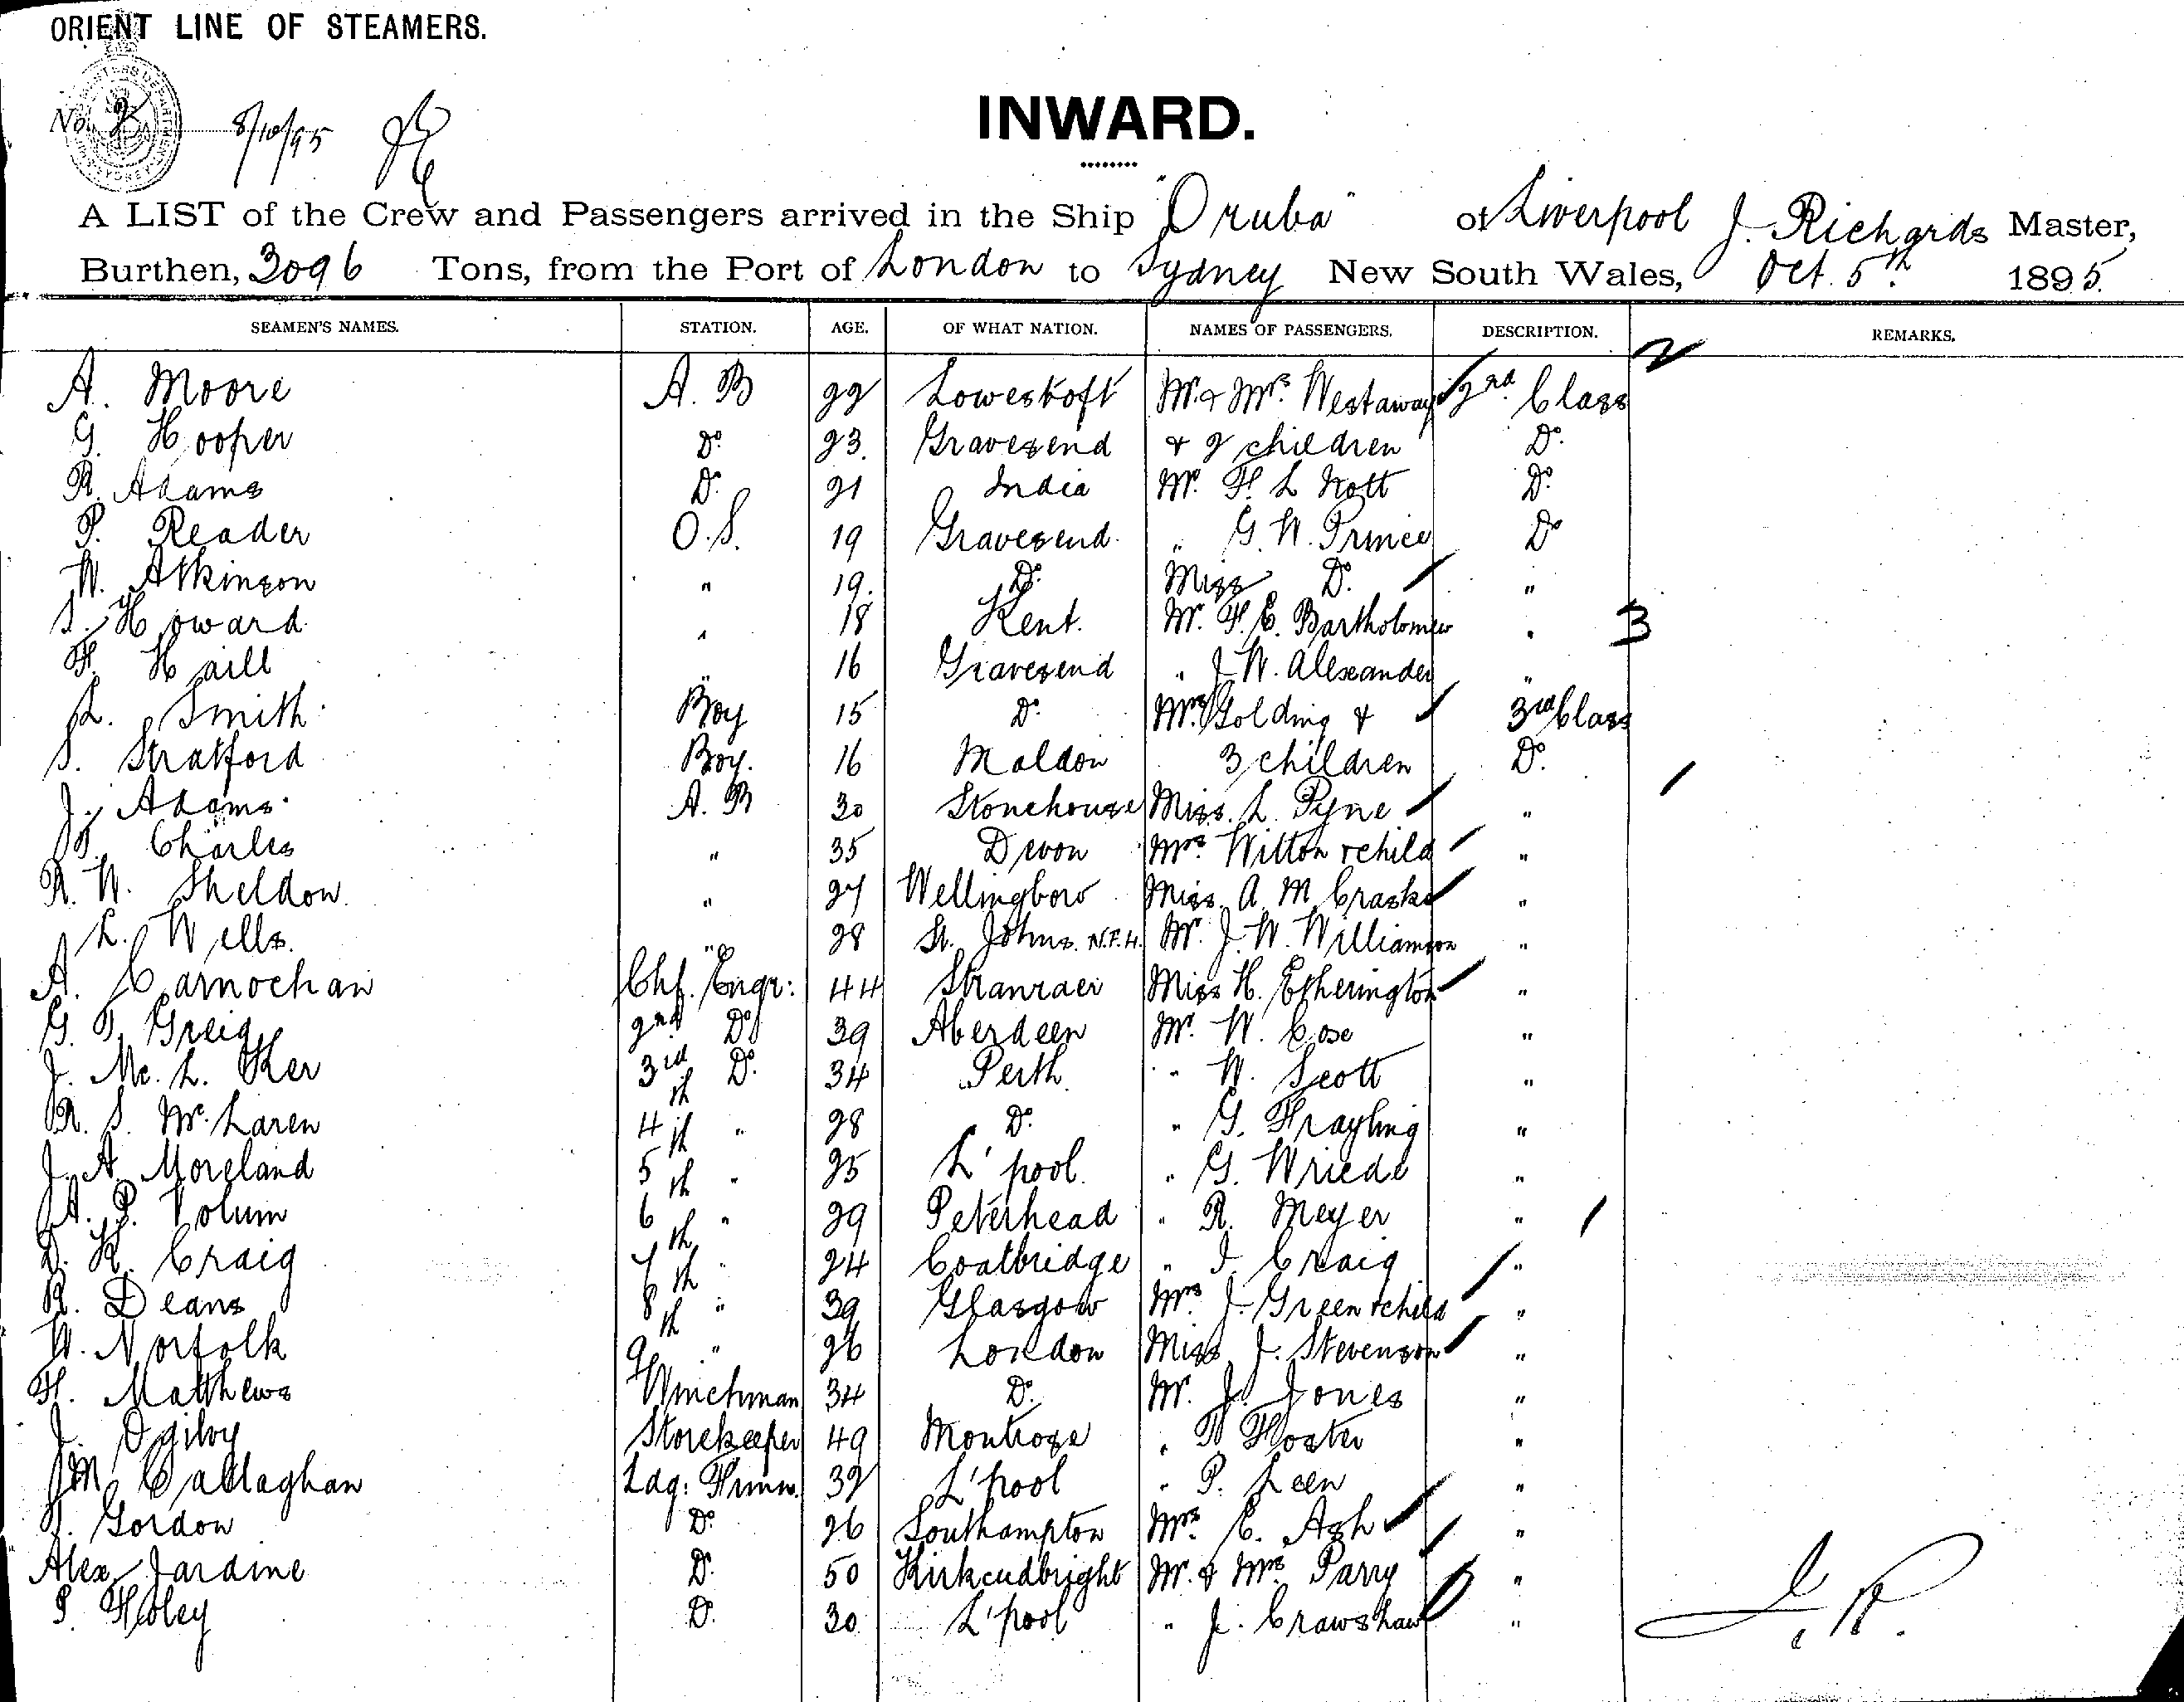 ORIENT LINE OF STEAMERS.
No. 2 8/10/95
INWARD.
A LIST of the Crew and Passengers arrived in the Ship "Oruba" of Liverpool J. Richards Master,
Burthen, 3096 Tons, from the Port of London to Sydney New South Wales, Oct. 5th. 1895.
SEAMEN'S NAMES. STATION. AGE. OF WHAT NATION. NAMES OF PASSENGERS. DESCRIPTION. REMARKS.
A. Moore A. B 22 Lowestoft Mr. & Mrs. Westaway 2nd. Class 2
G. Hooper Do. 23. Gravesend & 2 children Do.
R. Adams Do. 21 India Mr. F. L Nott Do.
P. Reader O.S. 19 Gravesend. " G. W. Prince Do
W. Atkinson " 19. Do. Miss Do. "
S. Howard " 18 Kent. Mr. F. E. Bartholomew " 3
F. Haill " 16 Gravesend " J. W. Alexander "
L. Smith Boy 15 Do. Mrs. Golding & 3rd Class
S. Stratford Boy. 16 Maldon 3 children Do.
J. Adams. A. B 30 Stonehouse Miss. L. Pyne "
Charles " 35 Devon Mrs. Witton & child "
R. W. Sheldon. " 27 Wellingboro Miss. A. M. Craske "
L. Wells. " 28 St. Johns. N.F.H. Mr. J. W. Williamson "
A. Carnochan Chf. Engr: 44 Stranraer Miss H. Etherington "
G. T. Greig 2nd Do 39 Aberdeen Mr. W. Cose "
J. Mc. L. Ker 3rd Do. 34 Perth. " W. Scott "
R. S. Mc. Laren 4th " 28 Do. " G. Frayling "
J. A. Moreland 5th " 25 L'pool. " G. Wriede "
A. P. Volum 6th " 29 Peterhead " R. Meyer "
D. K. Craig 7th " 24 Coatbridge " J. Craig "
R. Deans 8th " 39 Glasgow Mrs. J. Green & child "
W. Norfolk 9th " 26 London Miss J. Stevenson "
F. Matthews Winchman 34 Do. Mr. J. Jones "
J. Ogilvy Storekeeper 49 Montrose " "
M. Callaghan Ldg: Firmn. 32 L'pool " P. Leen "
Gordon Do. 26 Southampton Mrs. E. Ash "
Alex Jardine Do. 50 Kirkcudbright Mr. & Mrs. Parry "
P. Foley Do. 30 L'pool " J. Crawshaw "
J. R.